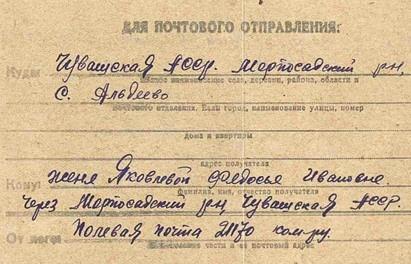 ДЛЯ ПОЧТОВОГО ОТПРАВЛЕНИЯ:
Куда Чувашская АССР. Марпосадский рн,
полное наименование села, деревни, района, области и
С. Альдеево
почтового отделения. Если город, наименование улицы, номер
дома и квартиры
адрес получателя
Кому: жене Яковлевой Федосье Ивановне.
фамилия, имя, отчество получателя
Через Марпосадский рн Чувашская АССР.
От кого: Полевая почта 21170 ком-ру.
части и ее почтовый адрес